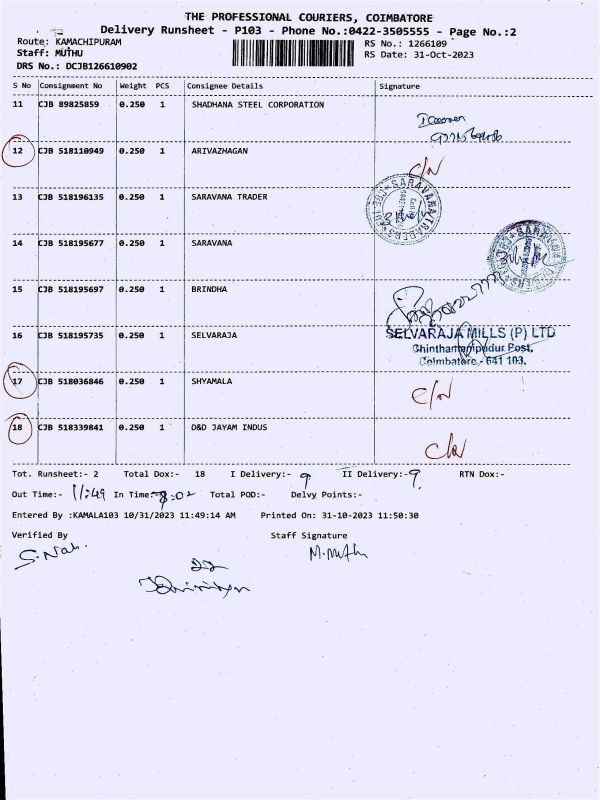 THE PROFESSIONAL COURIERS, COIMBATORE
Delivery Runsheet - P103 - Phone No.:0422-3505555 - Page No.:2
Route: KAMACHIPURAM
RS No.: 1266109
Staff: MUTHU
RS Date: 31-Oct-2023
DRS No.: DCJB126610902
S No Consignment No Weight PCS Consignee Details Signature
11 CJB 89825859 0.250 1 SHADHANA STEEL CORPORATION
12 CJB 518110949 0.250 1 ARIVAZHAGAN C/N
13 CJB 518196135 0.250 1 SARAVANA TRADER
14 CJB 518195677 0.250 1 SARAVANA
15 CJB 518195697 0.250 1 BRINDHA
16 CJB 518195735 0.250 1 SELVARAJA
SELVARAJA MILLS (P) LTD
Chinthamanipudur Post,
Coimbatore - 641 103.
17 CJB 518036846 0.250 1 SHYAMALA C/N
18 CJB 518339841 0.250 1 D&D JAYAM INDUS C/N
Tot. Runsheet:- 2 Total Dox:- 18 I Delivery:- 9 II Delivery:- 9 RTN Dox:-
Out Time:- 11:49 In Time:- Total POD:- Delvy Points:-
Entered By :KAMALA103 10/31/2023 11:49:14 AM Printed On: 31-10-2023 11:50:30
Verified By Staff Signature
M. Muthu